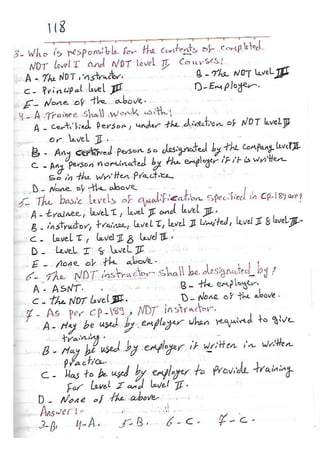 118
3- Who is responsible for the contents of completed.
NDT level I and NDT level II courses!
A - The NDT instructor.
B - The NDT level III
C - Principal level III
D- Employer.
E - None of the above.
4- A Trainee shall work with!
A - Certified person, under the direction of NDT level II
or level II.
B - Any certified person so designated by the company level III
C - Any person nominated by the employer if it is written
so in the written practice
D - None of the above
5- The basic levels of qualification specified in CP-189 are!
A - trainee, level I, level II and level III.
B - instructor, trainee, level I, level II limited, level II & level III-
C - level I, level II & level III.
D - level I & level II
E - none of the above.
6- The NDT instructor shall be designated by!
A - ASNT.
B - the employer.
C - the NDT level III.
D - None of the above.
7- As per CP-189, NDT instructor.
A - May be used by employer when required to give
training.
B - May be used by employer if written in written
practice
C - Has to be used by employer to provide training
for level I and level II.
D - None of the above.
Answer:-
3-B. 4-A. 5-B. 6-C. 7-C.